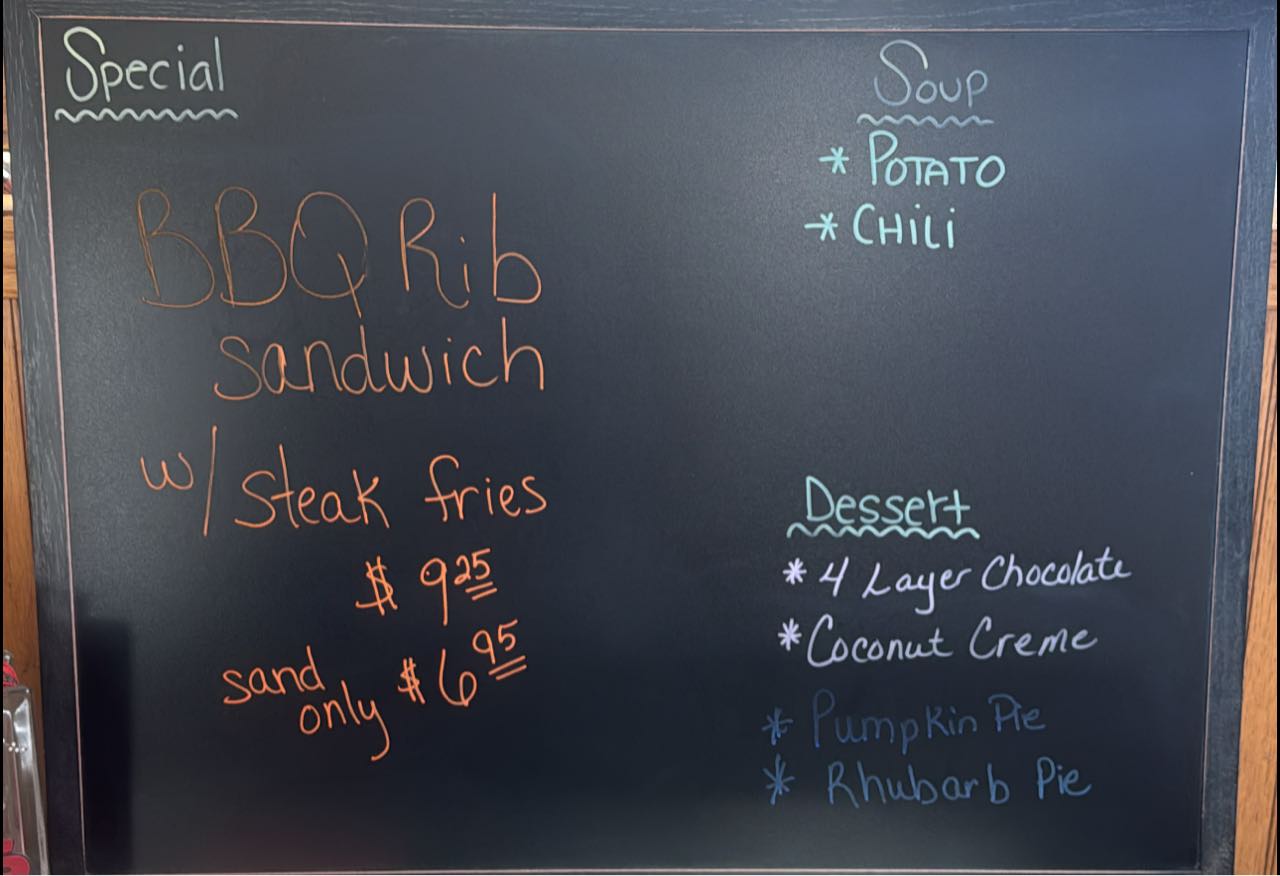 Special
BBQ Rib
sandwich
w/ steak fries
$ 9 25
sand
only $6 95
Soup
* POTATO
* CHiLi
Dessert
* 4 Layer Chocolate
* Coconut Creme
* Pumpkin Pie
* Rhubarb Pie